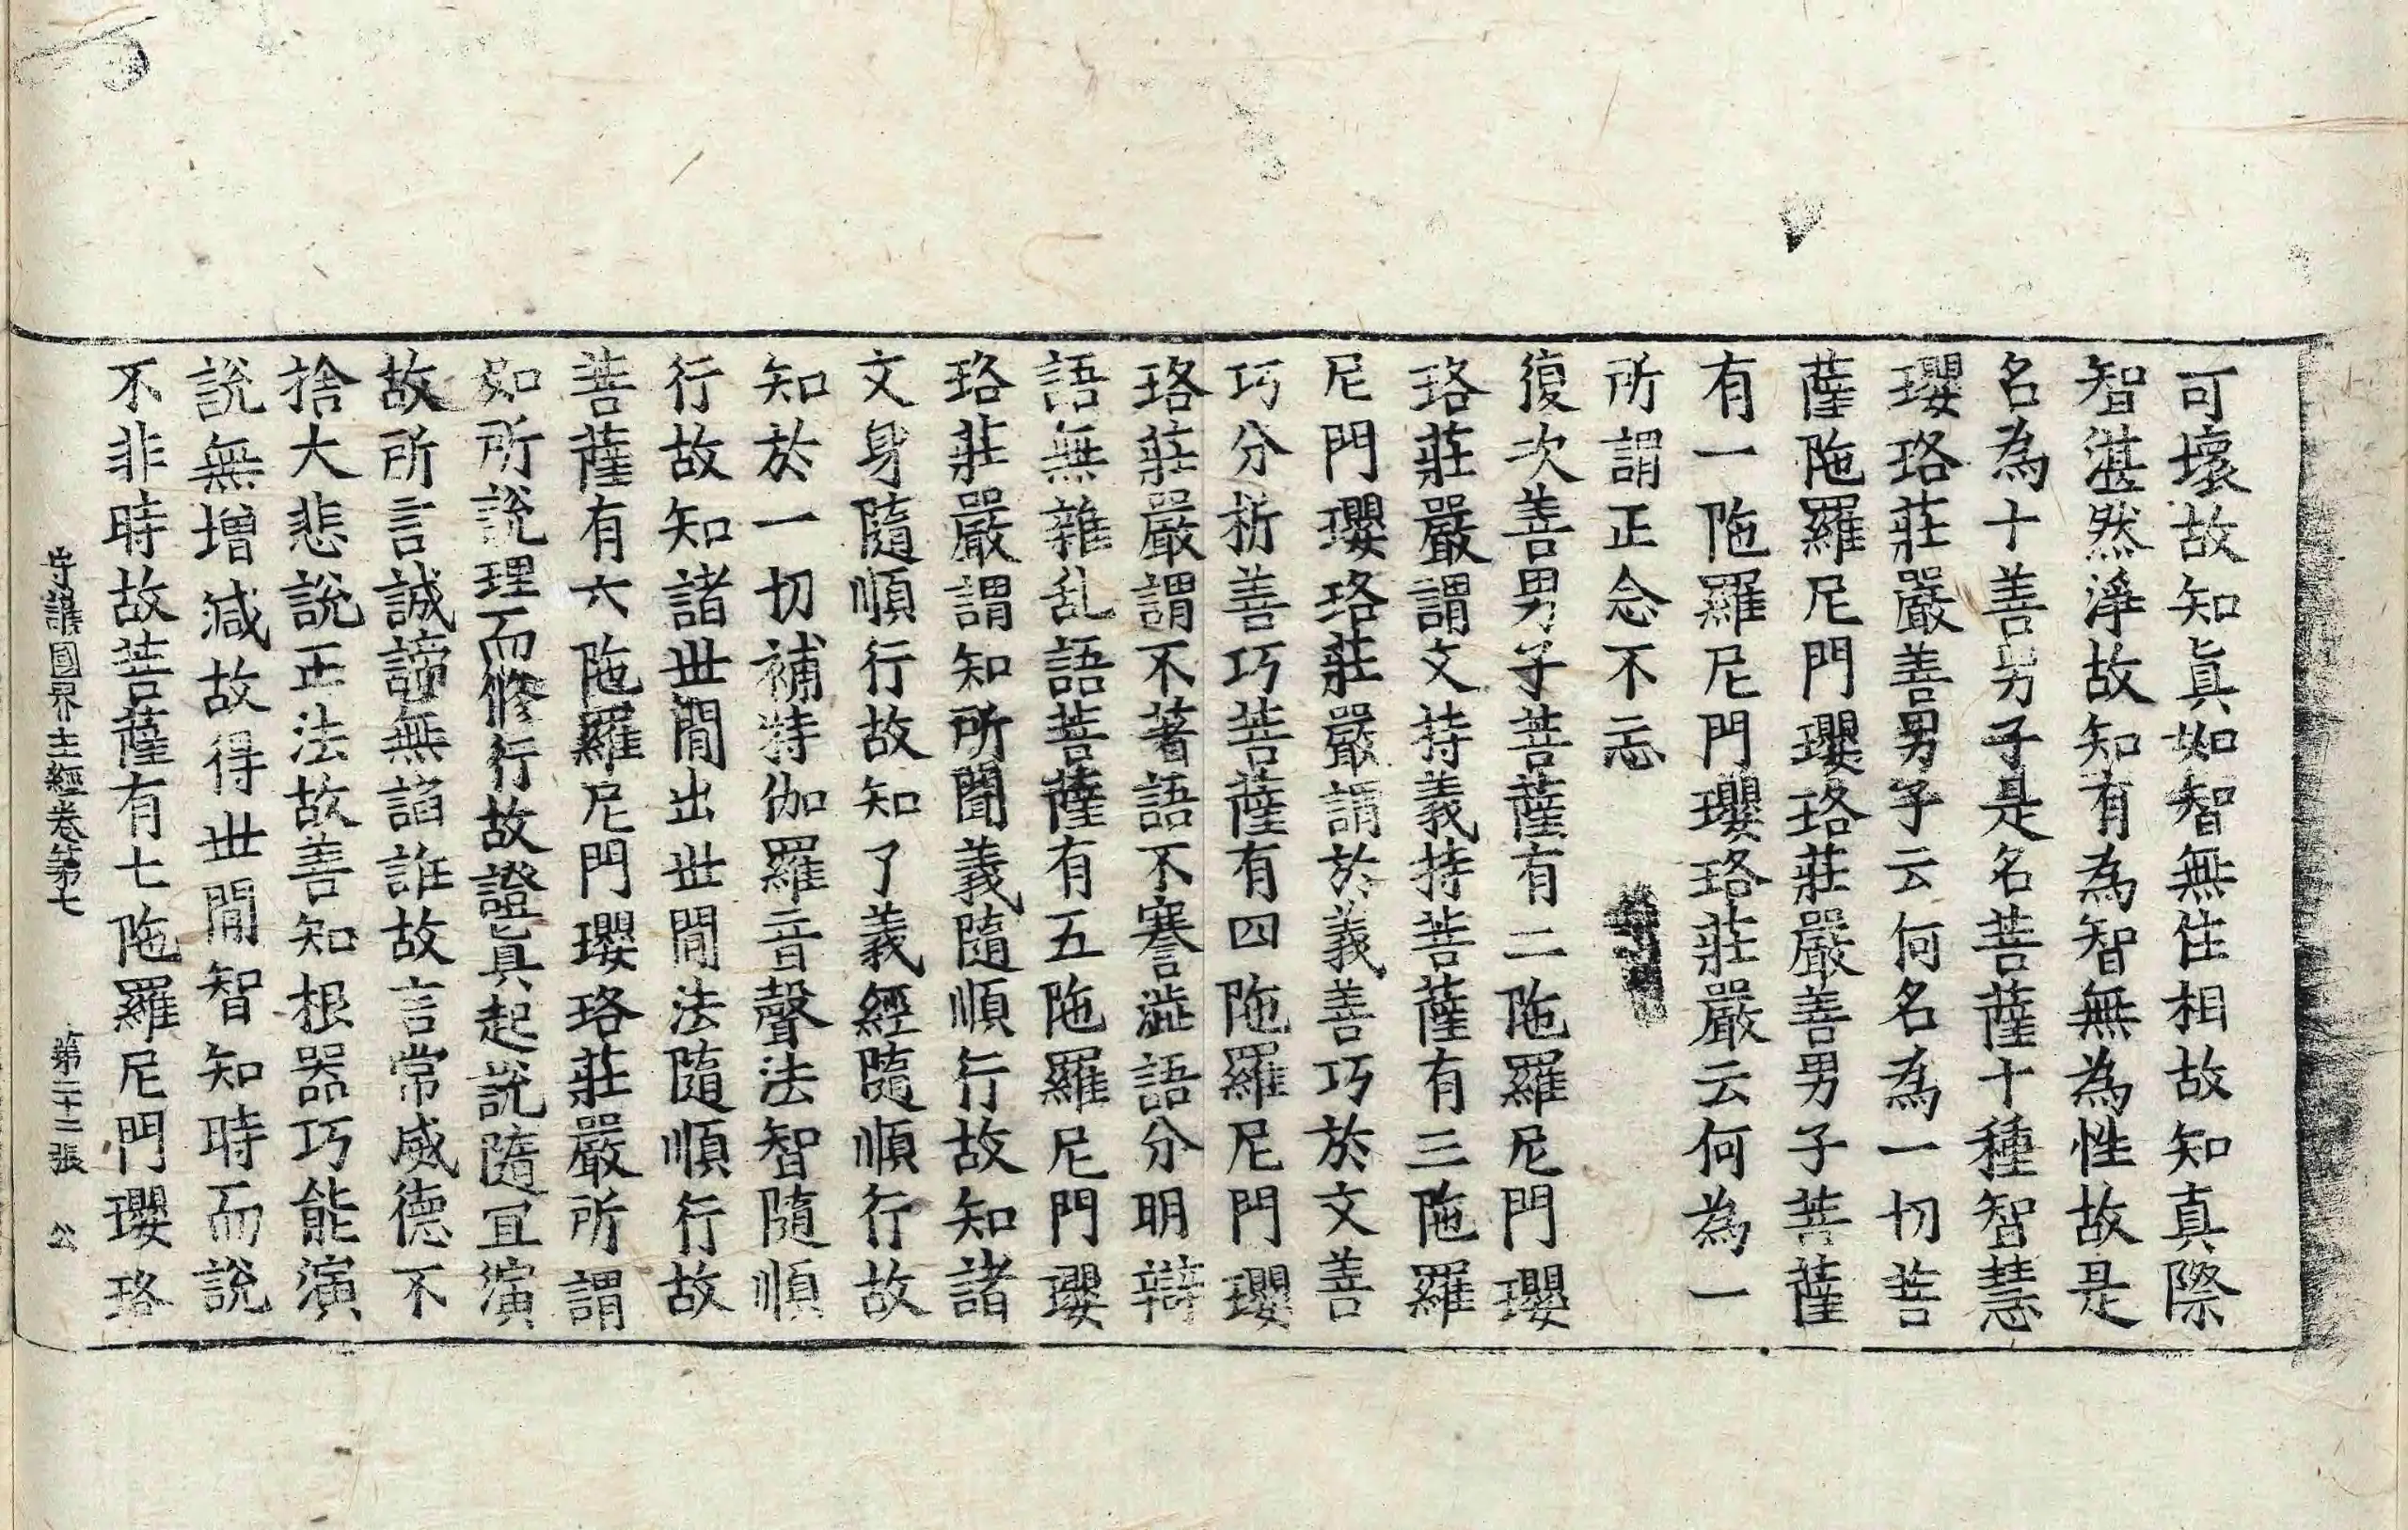 可壞故知眞如智無住相故知真際
智湛然淨故知有為智無為性故是
名為十善男子是名菩薩十種智慧
瓔珞莊嚴善男子云何名為一切菩
薩陁羅尼門瓔珞莊嚴善男子菩薩
有一陁羅尼門瓔珞莊嚴云何為一
所謂正念不忘
復次善男子菩薩有二陁羅尼門瓔
珞莊嚴謂文持義持菩薩有三陁羅
尼門瓔珞莊嚴謂於義善巧於文善
巧分析善巧菩薩有四陁羅尼門瓔
珞莊嚴謂不著語不謇澁語分明辯
語無雜乱語菩薩有五陁羅尼門瓔
珞莊嚴謂知所聞義隨順行故知諸
文身隨順行故知了義經隨順行故
知於一切補特伽羅音聲法智隨順
行故知諸世閒出世閒法隨順行故
菩薩有六陁羅尼門瓔珞莊嚴所謂
如所說理而修行故證真起說隨冝演
故所言誠諦無諂誑故言常威德不
捨大悲說正法故善知根器巧能演
說無增減故得世閒智知時而說
不非時故菩薩有七陁羅尼門瓔珞
守護國界主經卷第七 第二十二張 公